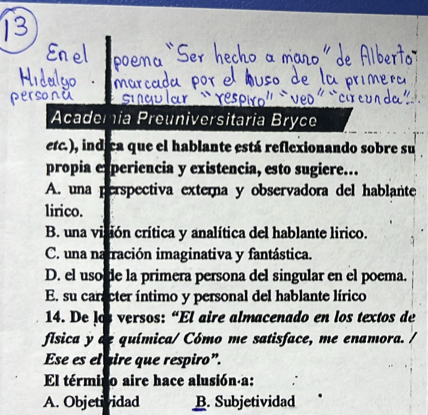 13
En el poema "Ser hecho a mano" de Alberto
Hidalgo marcada por el huso de la primera
persona singular "respiro" "veo" "circunda"..
Academia Preuniversitaria Bryce
etc.), indica que el hablante está reflexionando sobre su
propia experiencia y existencia, esto sugiere...
A. una perspectiva externa y observadora del hablante
lirico.
B. una visión crítica y analítica del hablante lirico.
C. una narración imaginativa y fantástica.
D. el uso de la primera persona del singular en el poema.
E. su carácter íntimo y personal del hablante lírico
14. De los versos: "El aire almacenado en los textos de
física y de química/ Cómo me satisface, me enamora. /
Ese es el aire que respiro".
El término aire hace alusión a:
A. Objetividad B. Subjetividad